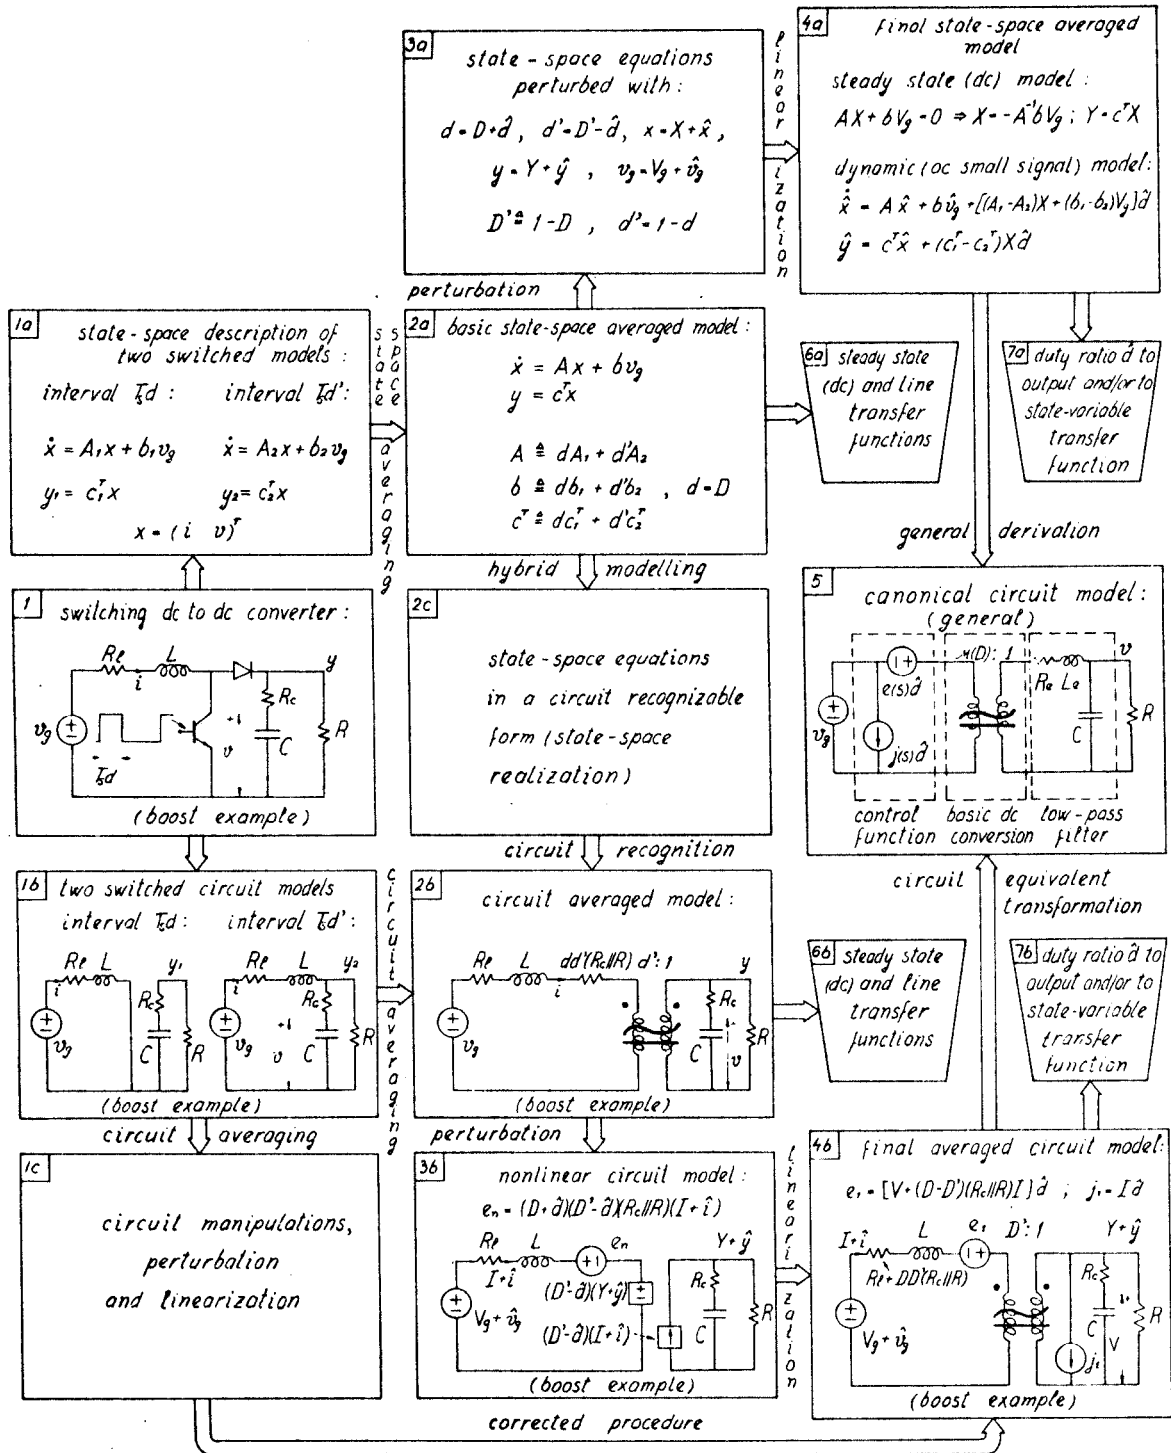 3a
state-space equations
perturbed with:
d=D+d̂, d'=D'-d̂, x=X+x̂,
y=Y+ŷ , v_g=V_g+v̂_g
D'≜1-D , d'=1-d
linearization
4a
final state-space averaged
model
steady state (dc) model:
AX+bV_g=0 ⇒ X=-A⁻¹bV_g; Y=cᵀX
dynamic (ac small signal) model:
x̂̇ = Ax̂ + bv̂_g+[(A₁-A₂)X+(b₁-b₂)V_g]d̂
ŷ = cᵀx̂ + (c₁ᵀ-c₂ᵀ)Xd̂
perturbation
1a
state-space description of
two switched models:
interval T_sd: interval T_sd':
ẋ=A₁x+b₁v_g ẋ=A₂x+b₂v_g
y₁=c₁ᵀx y₂=c₂ᵀx
x=(i v)ᵀ
state space averaging
2a
basic state-space averaged model:
ẋ = Ax + bv_g
y = cᵀx
A ≜ dA₁ + d'A₂
b ≜ db₁ + d'b₂ , d=D
cᵀ ≜ dc₁ᵀ + d'c₂ᵀ
6a
steady state
(dc) and line
transfer
functions
7a
duty ratio d̂ to
output and/or to
state-variable
transfer
function
general derivation
hybrid modelling
1
switching dc to dc converter:
Rℓ L y
i
R_c
v_g + v C R
T_sd
(boost example)
2c
state-space equations
in a circuit recognizable
form (state-space
realization)
5
canonical circuit model:
(general)
μ(D):1 v
e(s)d̂ R_e L_e
v_g j(s)d̂ C R
control basic dc low-pass
function conversion filter
circuit recognition
circuit equivalent
transformation
1b
two switched circuit models
interval T_sd: interval T_sd':
Rℓ L y₁ Rℓ L y₂
i R_c i R_c
v_g C R v_g v C R
(boost example)
circuit averaging
circuit averaging
2b
circuit averaged model:
Rℓ L dd'(R_c//R) d':1 y
i R_c
v_g C v R
(boost example)
6b
steady state
(dc) and line
transfer
functions
7b
duty ratio d̂ to
output and/or to
state-variable
transfer
function
perturbation
1c
circuit manipulations,
perturbation
and linearization
3b
nonlinear circuit model:
e_n=(D+d̂)(D'-d̂)(R_c//R)(I+î)
Rℓ L e_n Y+ŷ
I+î R_c
(D'-d̂)(Y+ŷ)
V_g+v̂_g C R
(D'-d̂)(I+î)
(boost example)
linearization
4b
final averaged circuit model:
e₁=[V+(D-D')(R_c//R)I]d̂ ; j₁=Id̂
I+î L e₁ D':1 Y+ŷ
Rℓ+DD'(R_c//R) R_c
V_g+v̂_g C R
V
j₁
(boost example)
corrected procedure